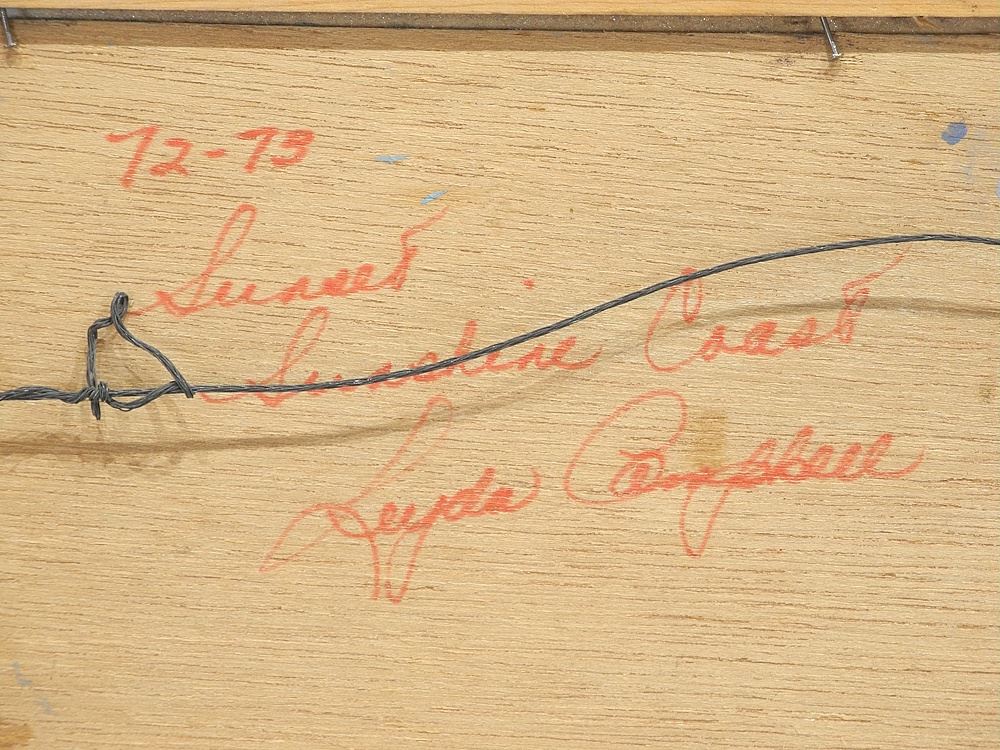 72-73
Sunset
Sunshine Coast
Leyda Campbell